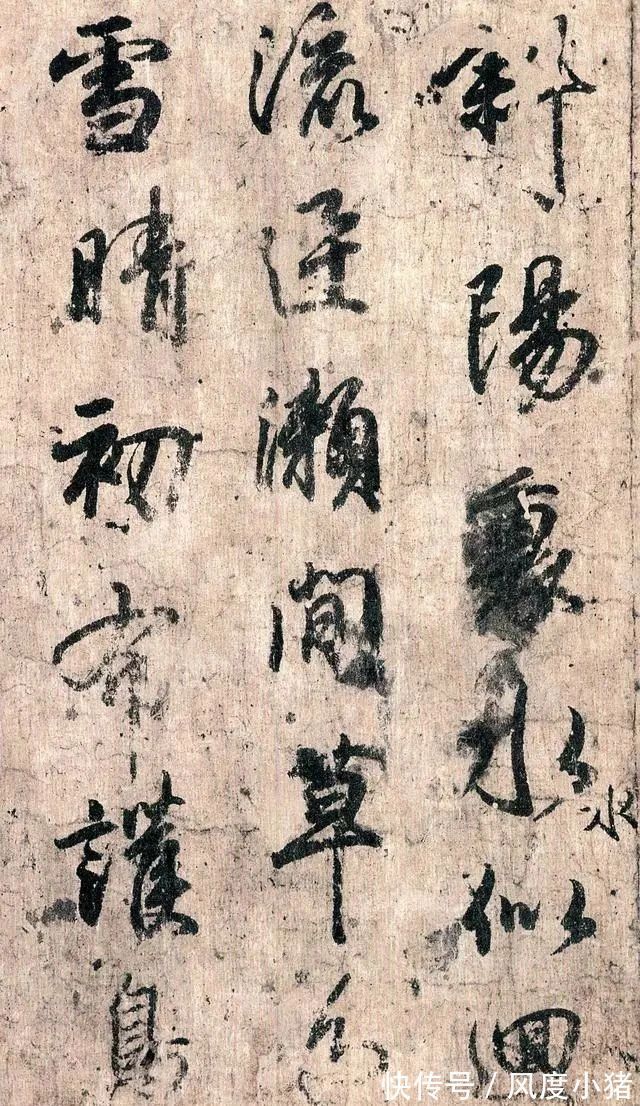 斜陽水水似迴
流逕瀨間草
雪晴初布護
快传号／风度小猪